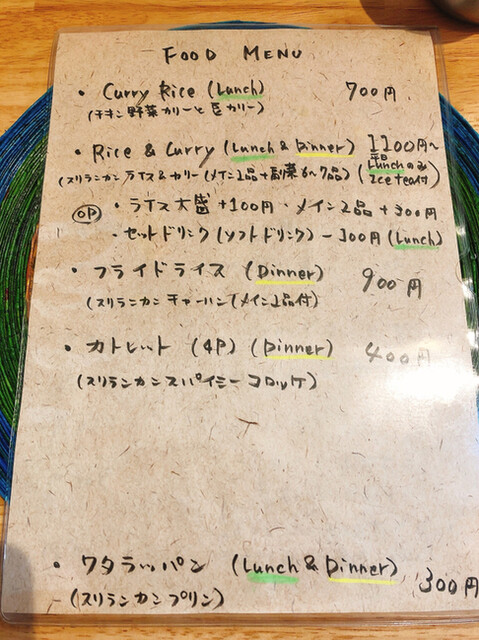 FOOD MENU
・Curry Rice (Lunch) 700円
(チキン野菜カリーと豆カリー)
・Rice & Curry (Lunch & Dinner) 1100円〜
(スリランカン ライス&カリー (メイン1品+副菜6〜7品) (平日Lunchのみ Ice tea付)
OP ・ライス大盛+100円 ・メイン2品+300円
・セットドリンク(ソフトドリンク) -100円 (Lunch)
・フライドライス (Dinner) 900円
(スリランカン チャーハン(メイン1品付)
・カトレット (4P) (Dinner) 400円
(スリランカンスパイシーコロッケ)
・ワタラッパン (Lunch & Dinner) 300円
(スリランカンプリン)